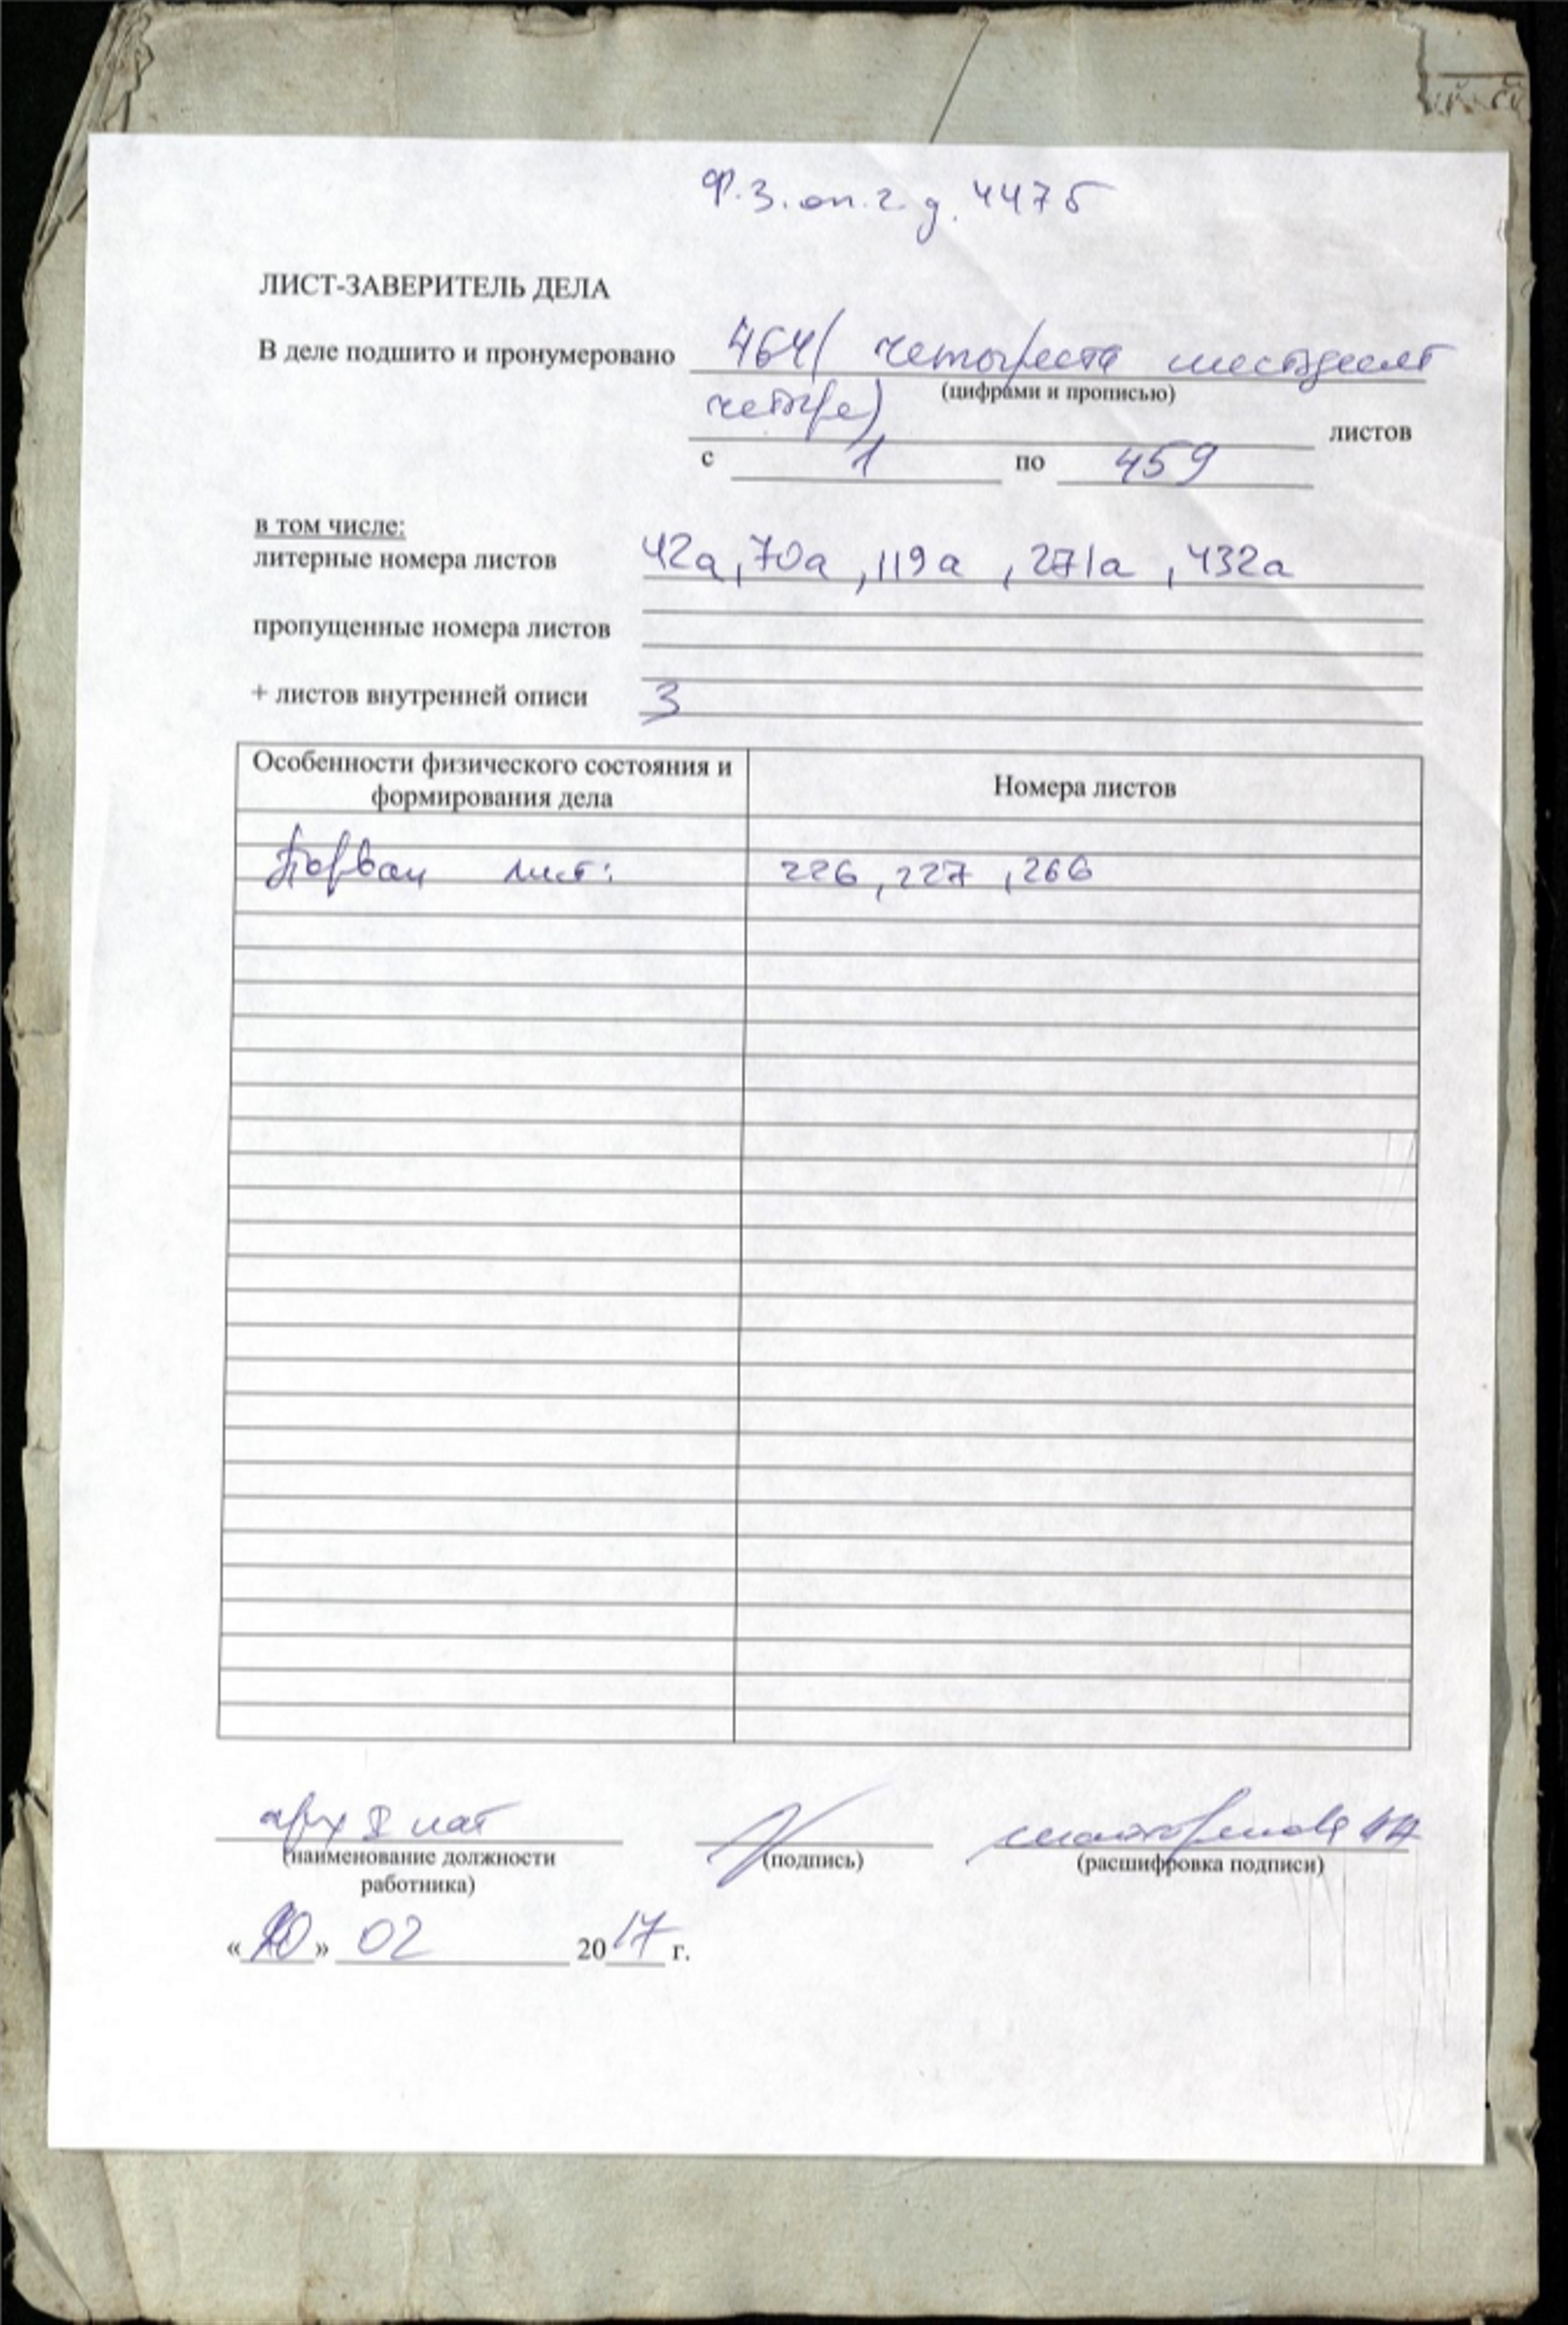 Ф. 3. оп. 2 д. 4475
ЛИСТ-ЗАВЕРИТЕЛЬ ДЕЛА
В деле подшито и пронумеровано 464 ( четыреста шестдесят
(цифрами и прописью)
четыре) листов
с 1 по 459
в том числе:
литерные номера листов 42а, 70а, 119а, 271а, 432а
пропущенные номера листов
+ листов внутренней описи 3
Особенности физического состояния и формирования дела Номера листов
Порван лист: 226, 227, 266
арх I кат
(наименование должности (подпись) (расшифровка подписи)
работника)
« » 02 2017 г.